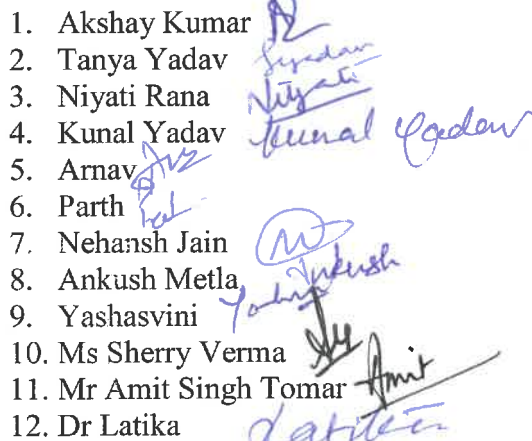 1. Akshay Kumar
2. Tanya Yadav
3. Niyati Rana Niyati
4. Kunal Yadav Kunal Yadav
5. Arnav
6. Parth
7. Nehansh Jain
8. Ankush Metla Ankush
9. Yashasvini
10. Ms Sherry Verma
11. Mr Amit Singh Tomar Amit
12. Dr Latika Latika